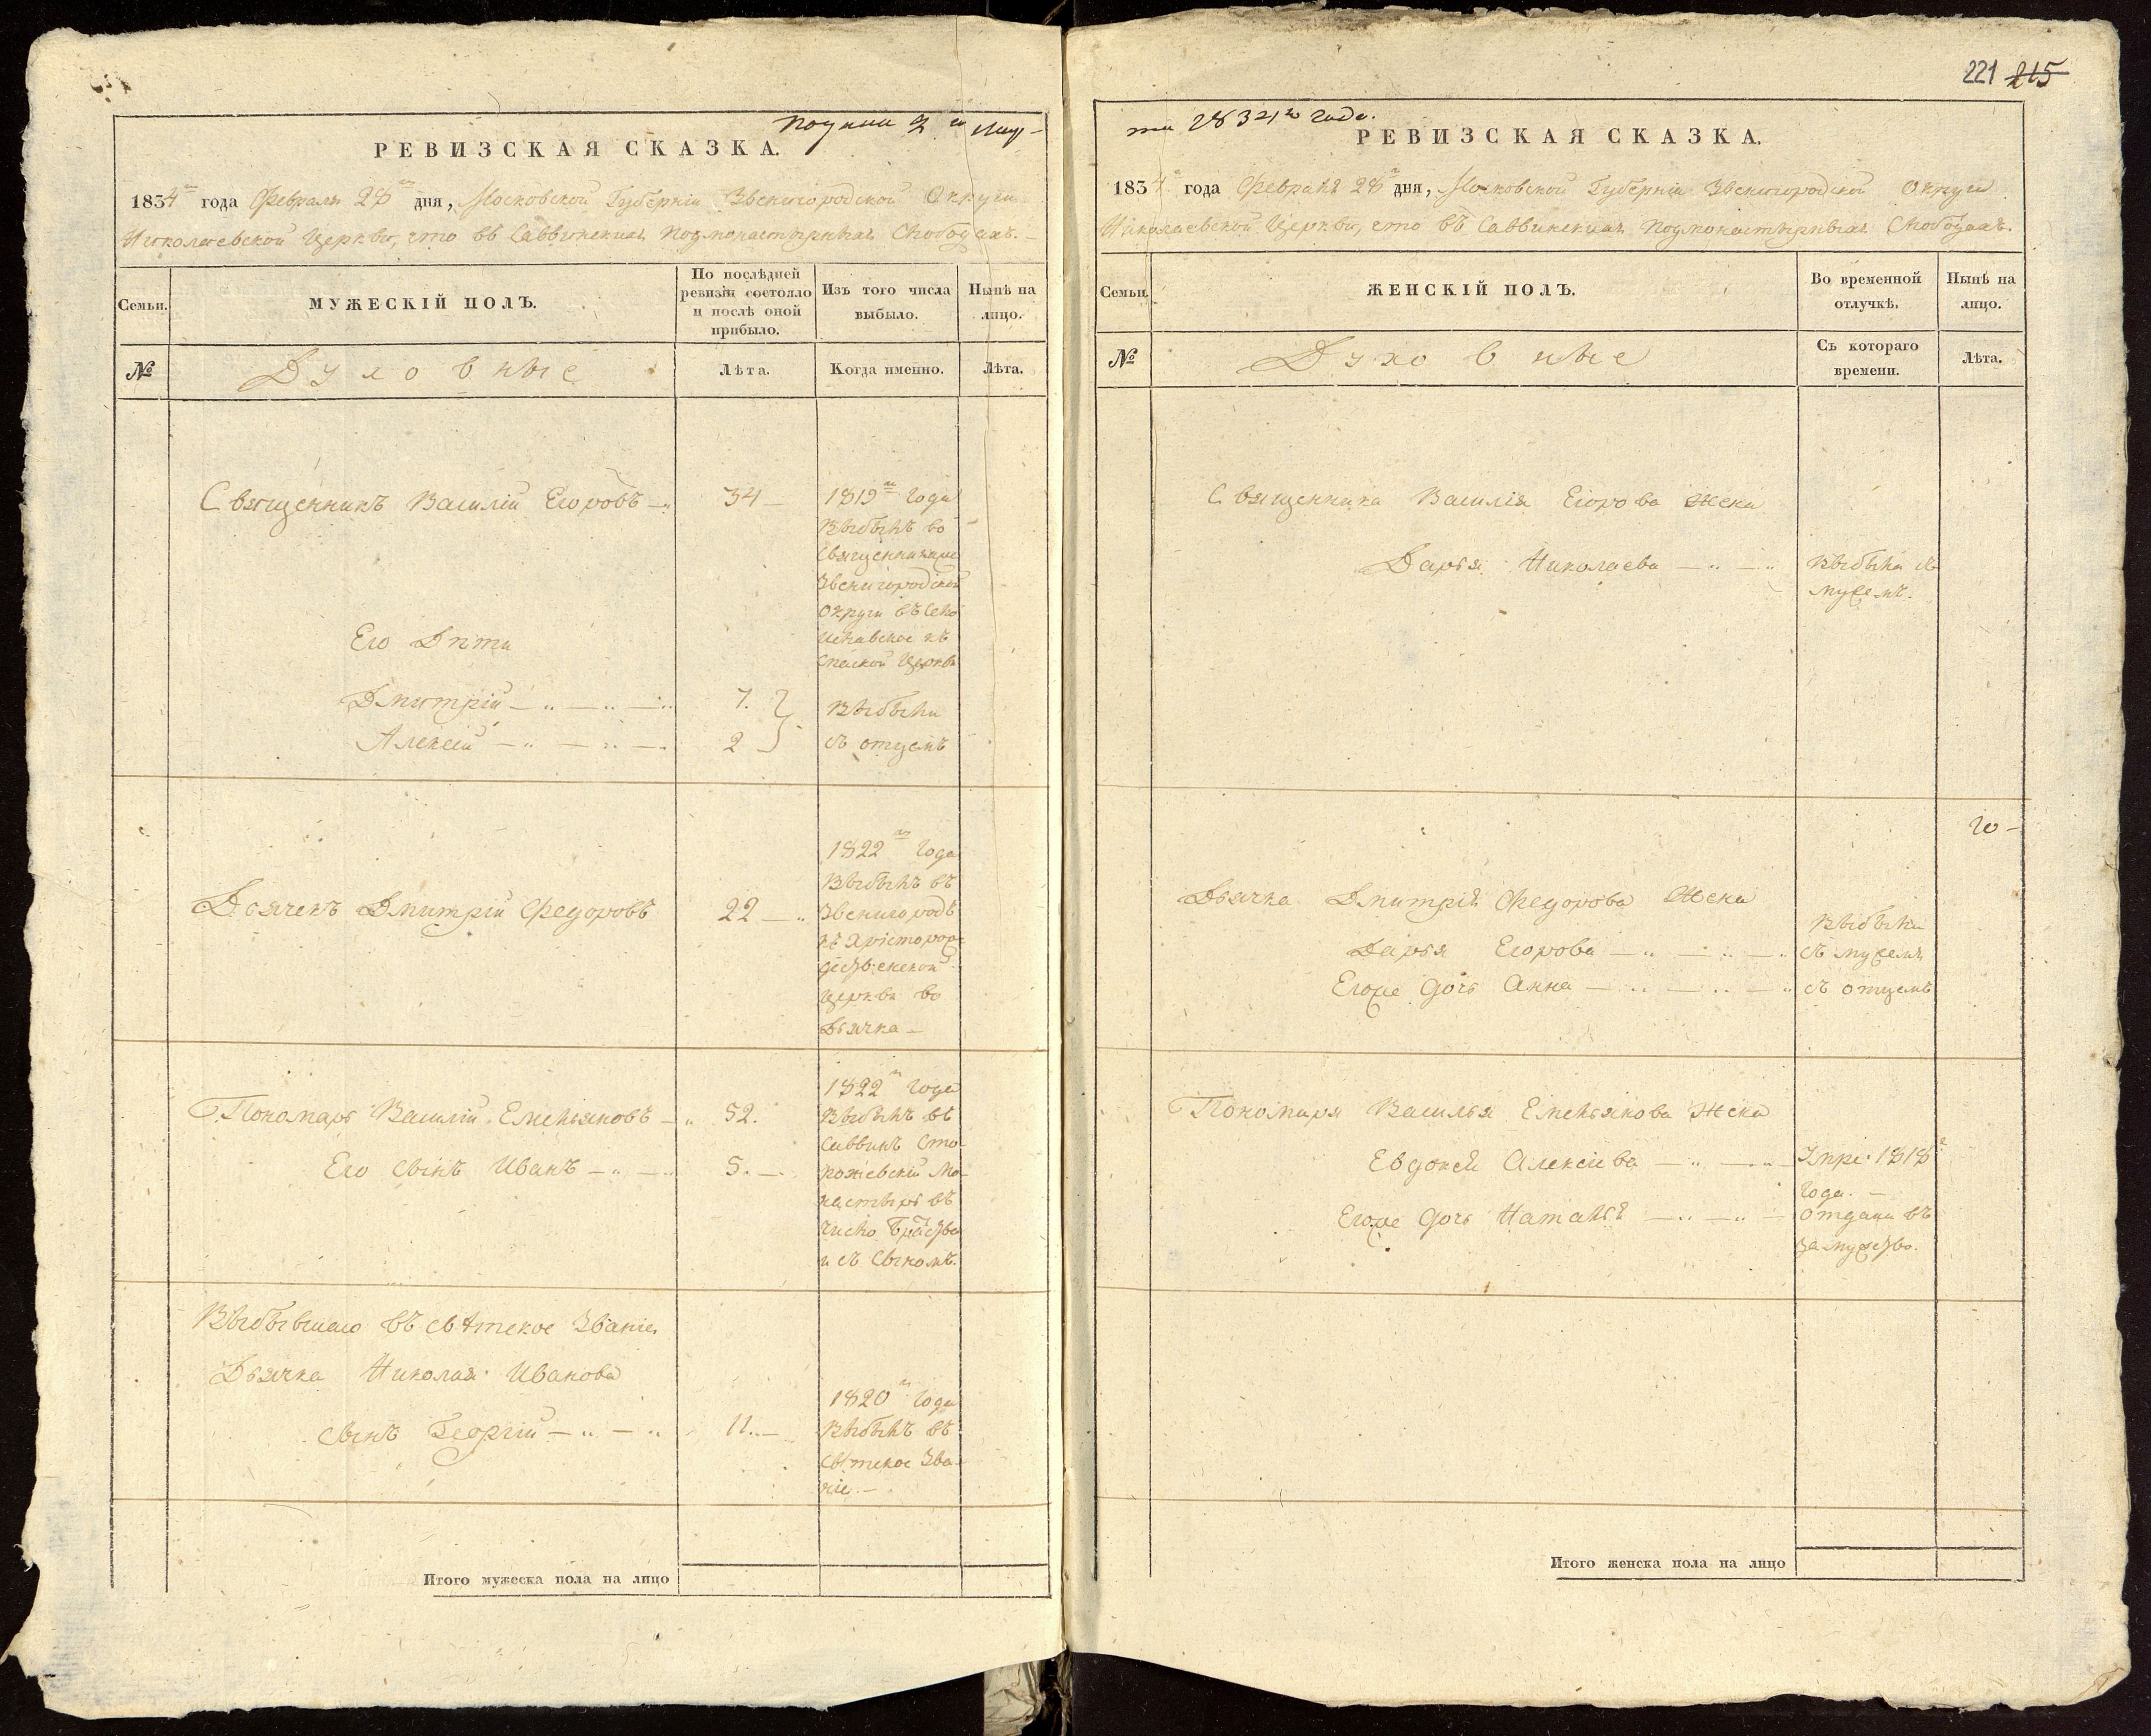 221 215
Подана 9 го Мар-
РЕВИЗСКАЯ СКАЗКА.
1834 го года Февраля 28 го дня, Московской Губерніи Звенигородской Округи
Николаевской Церкви, что въ Саввинскихъ Подмонастырныхъ Слободахъ.
Семьи.
МУЖЕСКІЙ ПОЛЪ.
По послѣдней ревизіи состояло и послѣ оной прибыло.
Изъ того числа выбыло.
Нынѣ на лицо.
№
Духовные
Лѣта.
Когда именно.
Лѣта.
Священникъ Василій Егоровъ 34
1819 го Года
выбылъ во
Священники
Звенигородской
Округи въ Село
къ
Спаской Церкви
Его Дѣти
Дмитрій 7.
Алексѣй 2
Выбыли
съ отцемъ
Дьячекъ Дмитрій Федоровъ 22
1822 го Года
Выбылъ въ
Звенигородъ
къ Христорож-
дественской
Церкви во
Дьячка
Пономарь Василій Емельяновъ 52.
Его сынъ Иванъ 5.
1822 го Года
Выбылъ въ
Саввинъ Сто-
рожевскій Мо-
настырь въ
число Братства
и съ Сыномъ.
Выбывшаго въ свѣтское Званіе
Дьячка Николая Иванова
сынъ Георгій 11.
1820 го Года
Выбылъ въ
свѣтское Зва-
ніе.
Итого мужеска пола на лицо
та 1834 го Года.
РЕВИЗСКАЯ СКАЗКА.
1834 го года Февраля 28 го дня, Московской Губерніи Звенигородской Округи
Николаевской Церкви, что въ Саввинскихъ Подмонастырныхъ Слободахъ.
Семьи.
ЖЕНСКІЙ ПОЛЪ.
Во временной отлучкѣ.
Нынѣ на лицо.
№
Духовные
Съ котораго времени.
Лѣта.
Священника Василія Егорова Жена
Дарья Николаева
Выбыла съ
мужемъ.
Дьячка Дмитрія Федорова Жена
Дарья Егорова
Выбыла
съ мужемъ
Егоже дочь Анна
съ отцемъ
Пономаря Василья Емельянова Жена
Евдокея Алексіева
Умре 1818 го
Года.
Егоже дочь Наталья
отдана въ
замужство.
Итого женска пола на лицо